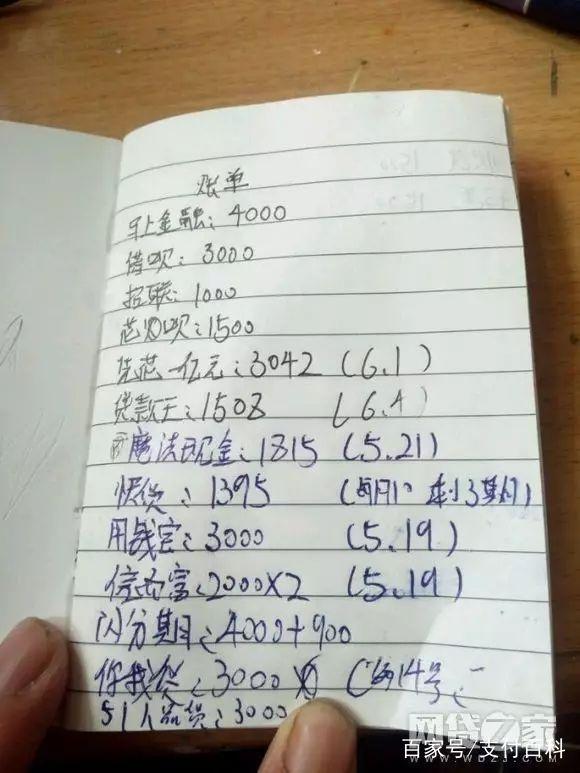 账单
马上金融：4000
借呗：3000
招联：1000
芯 呗：1500
先花一亿元：3042 (6.1)
贷款王：1508 (6.4)
魔法现金：1815 (5.21)
快贷：1395 (每月1 剩3期)
用钱宝：3000 (5.19)
信 富：2000×2 (5.19)
闪分期：4000+900
你我贷：3000 ( 14号
51人品贷：3000
网贷之家
WWW.WDZJ.COM
百家号/支付百科